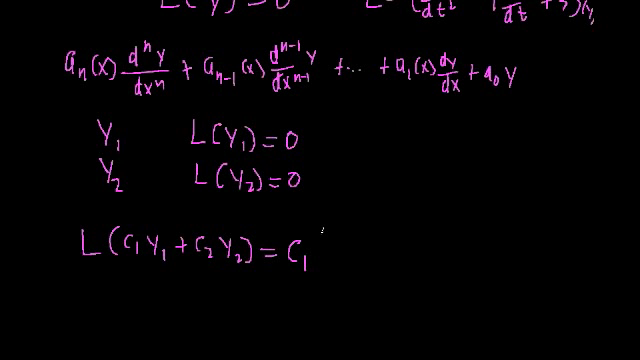 L(Y)=0 L=(
aₙ(x) dⁿy/dxⁿ + aₙ₋₁(x) dⁿ⁻¹y/dxⁿ⁻¹ + ... + a₁(x) dy/dx + a₀ y
Y₁ L(Y₁)=0
Y₂ L(Y₂)=0
L(c₁Y₁ + c₂Y₂) = c₁